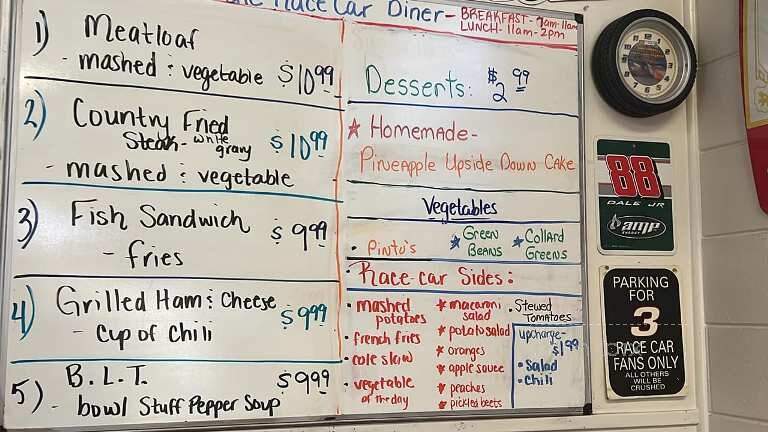 Race Car Diner - BREAKFAST - 7am-11am
LUNCH - 11am-2pm
1) Meatloaf
- mashed : vegetable $10.99
2) Country Fried
Steak - white gravy $10.99
- mashed : vegetable
3) Fish Sandwich $9.99
- fries
4) Grilled Ham : Cheese $9.99
- Cup of Chili
5) B.L.T. $9.99
- bowl Stuff Pepper Soup
Desserts: $2.99
★ Homemade-
PINEAPPLE UPSIDE DOWN CAKE
Vegetables
• Pinto's ★ GREEN BEANS ★ COLLARD GREENS
Race-car Sides:
• mashed potatoes
• french fries
• cole slaw
• vegetable of the day
★ macaroni salad
★ potato salad
★ oranges
★ apple sauce
★ peaches
★ pickled beets
• Stewed Tomatoes
upcharge- $1.99
• Salad
• Chili
88
DALE JR
amp
ENERGY
PARKING
FOR
3
RACE CAR
FANS ONLY
ALL OTHERS
WILL BE
CRUSHED